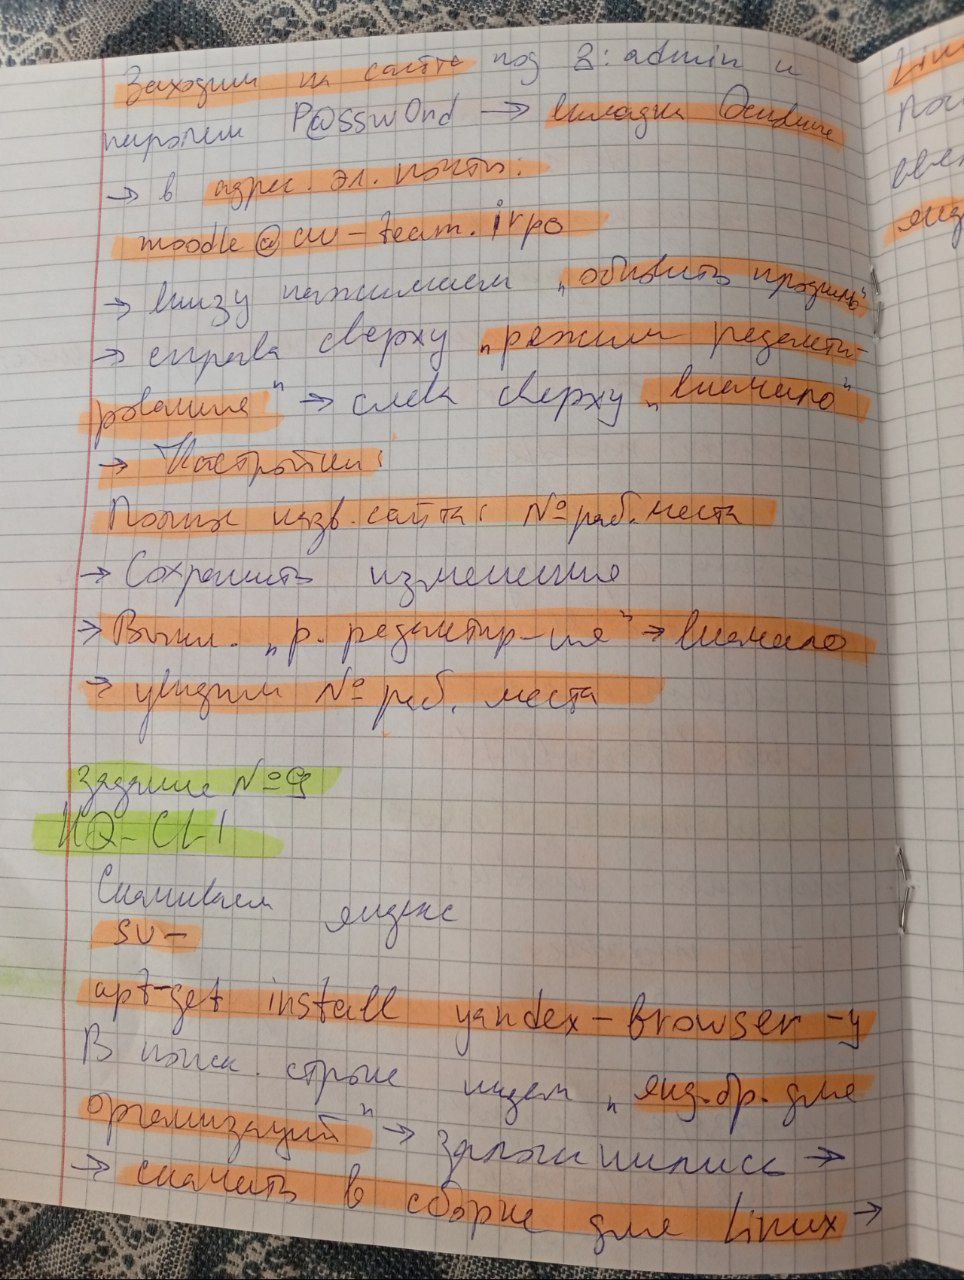 Заходим на сайте под 3: admin и
паролем P@ssw0rd → вкладка Основные
→ в адрес. эл. почты:
moodle@au-team.irpo
→ внизу нажимаем „обновить профиль"
→ справа сверху „режим редакти-
рования" → слева сверху „вначало"
→ Настройки:
Полное назв. сайта: № раб. места
→ Сохранить изменения
→ Выкл. „р. редактир-ия" → вначало
→ увидим № раб. места
Задание № 9
HQ-CL1
Скачиваем яндекс
su -
apt-get install yandex-browser -y
В поиск. строке ищем „янд. бр. для
организаций" →
→ скачать в сборке для Linux →
Lin
янд